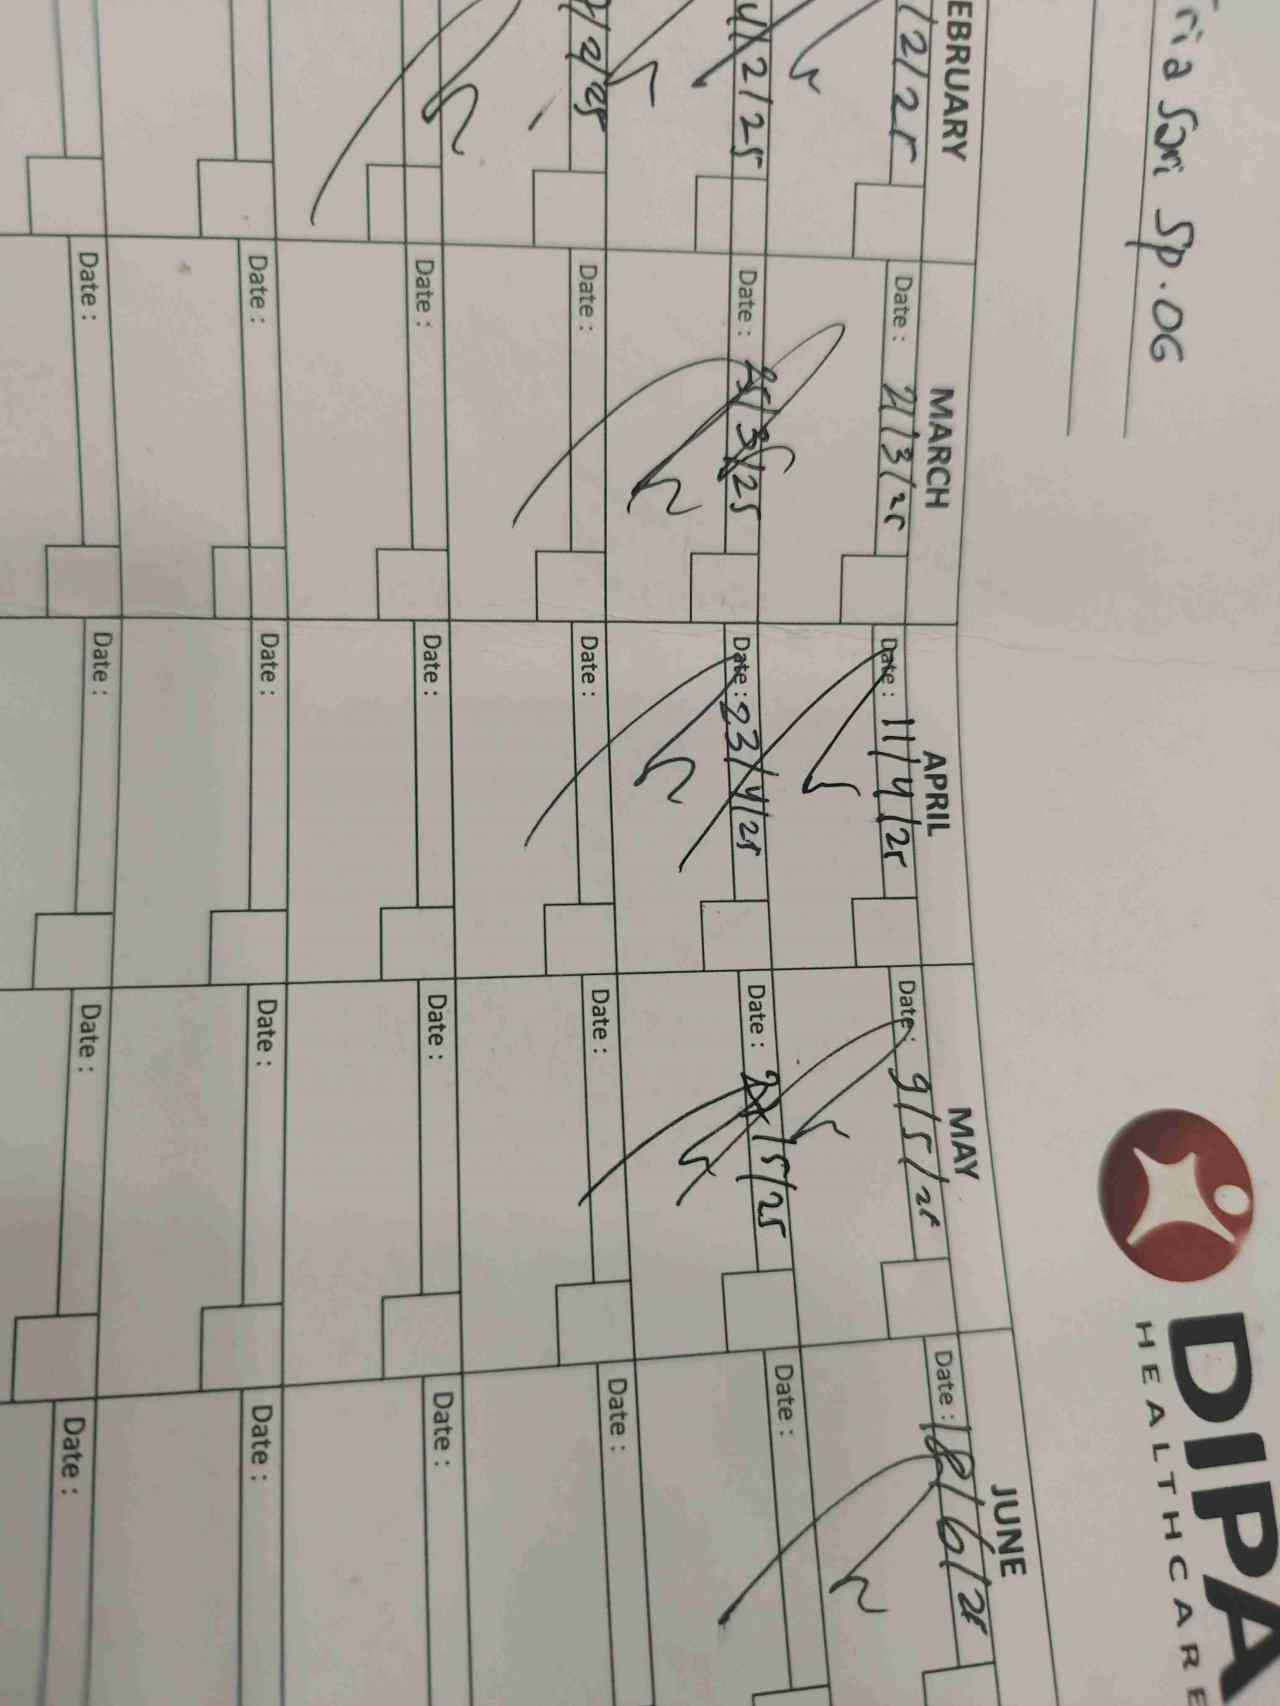 ria Sari Sp.OG
DIPA
HEALTHCARE
EBRUARY MARCH APRIL MAY JUNE
/2/25 Date : 21/3/25 Date : 11/4/25 Date : 9/5/25 Date : 18/6/25
/2/25 Date : 25/3/25 Date : 23/4/25 Date : /5/25 Date :
/2/25 Date : Date : Date : Date :
Date : Date : Date : Date :
Date : Date : Date : Date :
Date : Date : Date : Date :